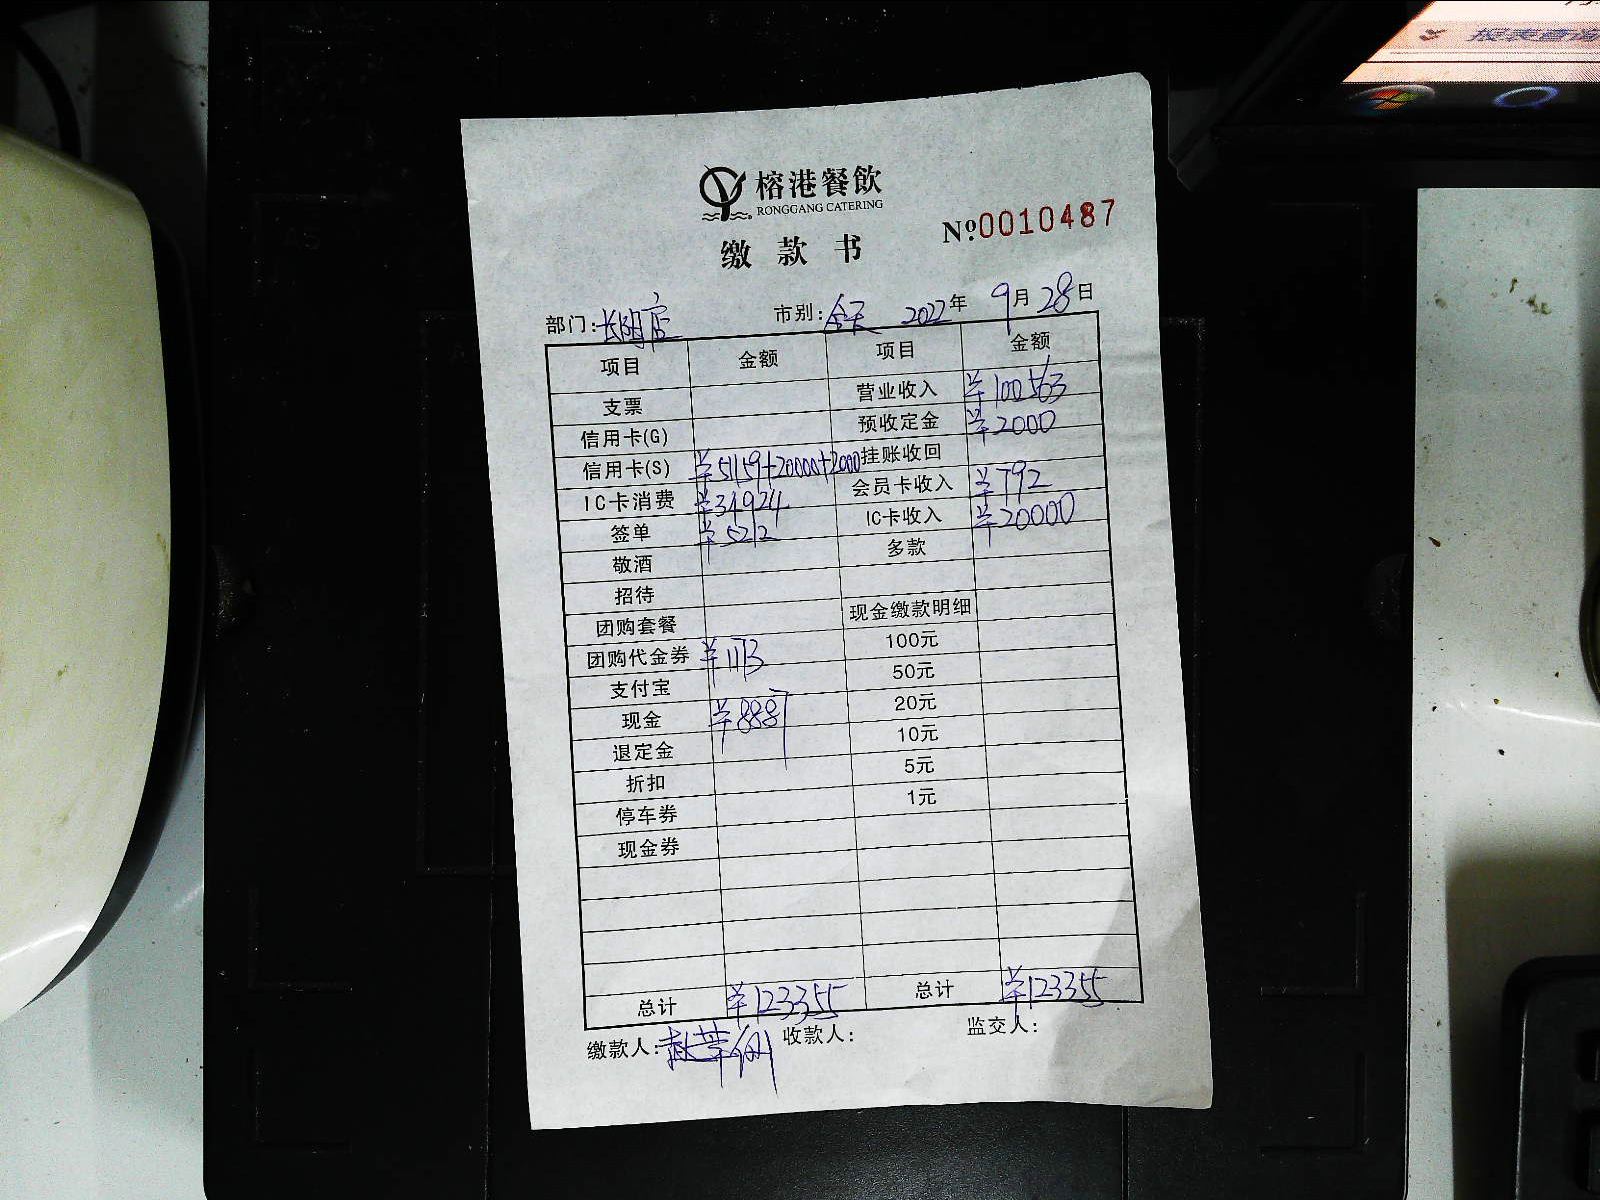 报表查询
榕港餐飲
RONGGANG CATERING
№:0010487
缴款书
部门:长阳店 市别:全天 2022年 9月28日
项目 金额 项目 金额
支票 营业收入 ¥100563
信用卡(G) 预收定金 ¥2000
信用卡(S) ¥51159+20000+2000 挂账收回
IC卡消费 ¥34924 会员卡收入 ¥792
签单 ¥5212 IC卡收入 ¥20000
敬酒 多款
招待
团购套餐 现金缴款明细
团购代金券 ¥1173 100元
支付宝 50元
现金 ¥8887 20元
退定金 10元
折扣 5元
停车券 1元
现金券
总计 ¥123355 总计 ¥123355
缴款人: 收款人: 监交人: